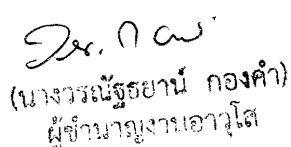 (นางวรณัฐธยาน์ กองคำ)
ผู้ชำนาญงานอาวุโส